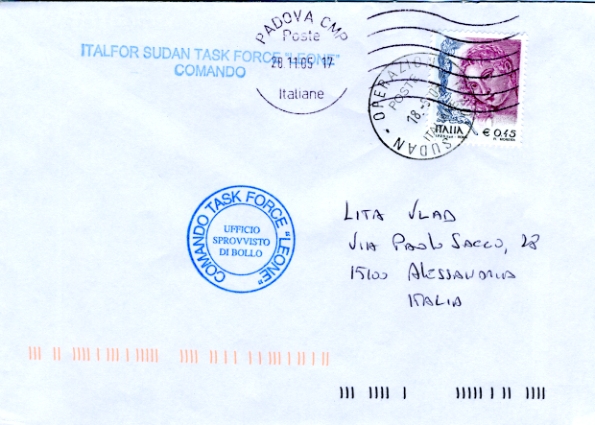 PADOVA CMP
Poste
28.11.05 17
Italiane
ITALFOR SUDAN TASK FORCE "LEONE"
COMANDO
OPERAZIO
POSTE
SUDAN
ITALIA
€ 0,45
COMANDO TASK FORCE "LEONE"
UFFICIO
SPROVVISTO
DI BOLLO
LITA VLAD
VIA PAOLO SACCO, 28
15100 ALESSANDRIA
ITALIA